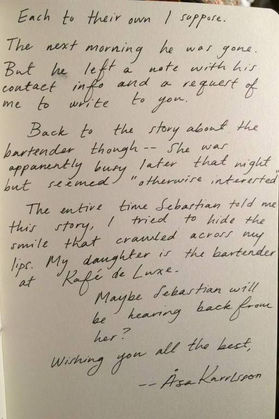 Each to their own I suppose.
The next morning he was gone.
But he left a note with his
contact info and a request of
me to write to you.
Back to the story about the
bartender though-- She was
apparently busy later that night
but seemed "otherwise interested"
The entire time Sebastian told me
this story, I tried to hide the
smile that crawled across my
lips. My daughter is the bartender
at Kafé de Luxe.
Maybe Sebastian will
be hearing back from
her?
Wishing you all the best,
-- Åsa Karrlsson